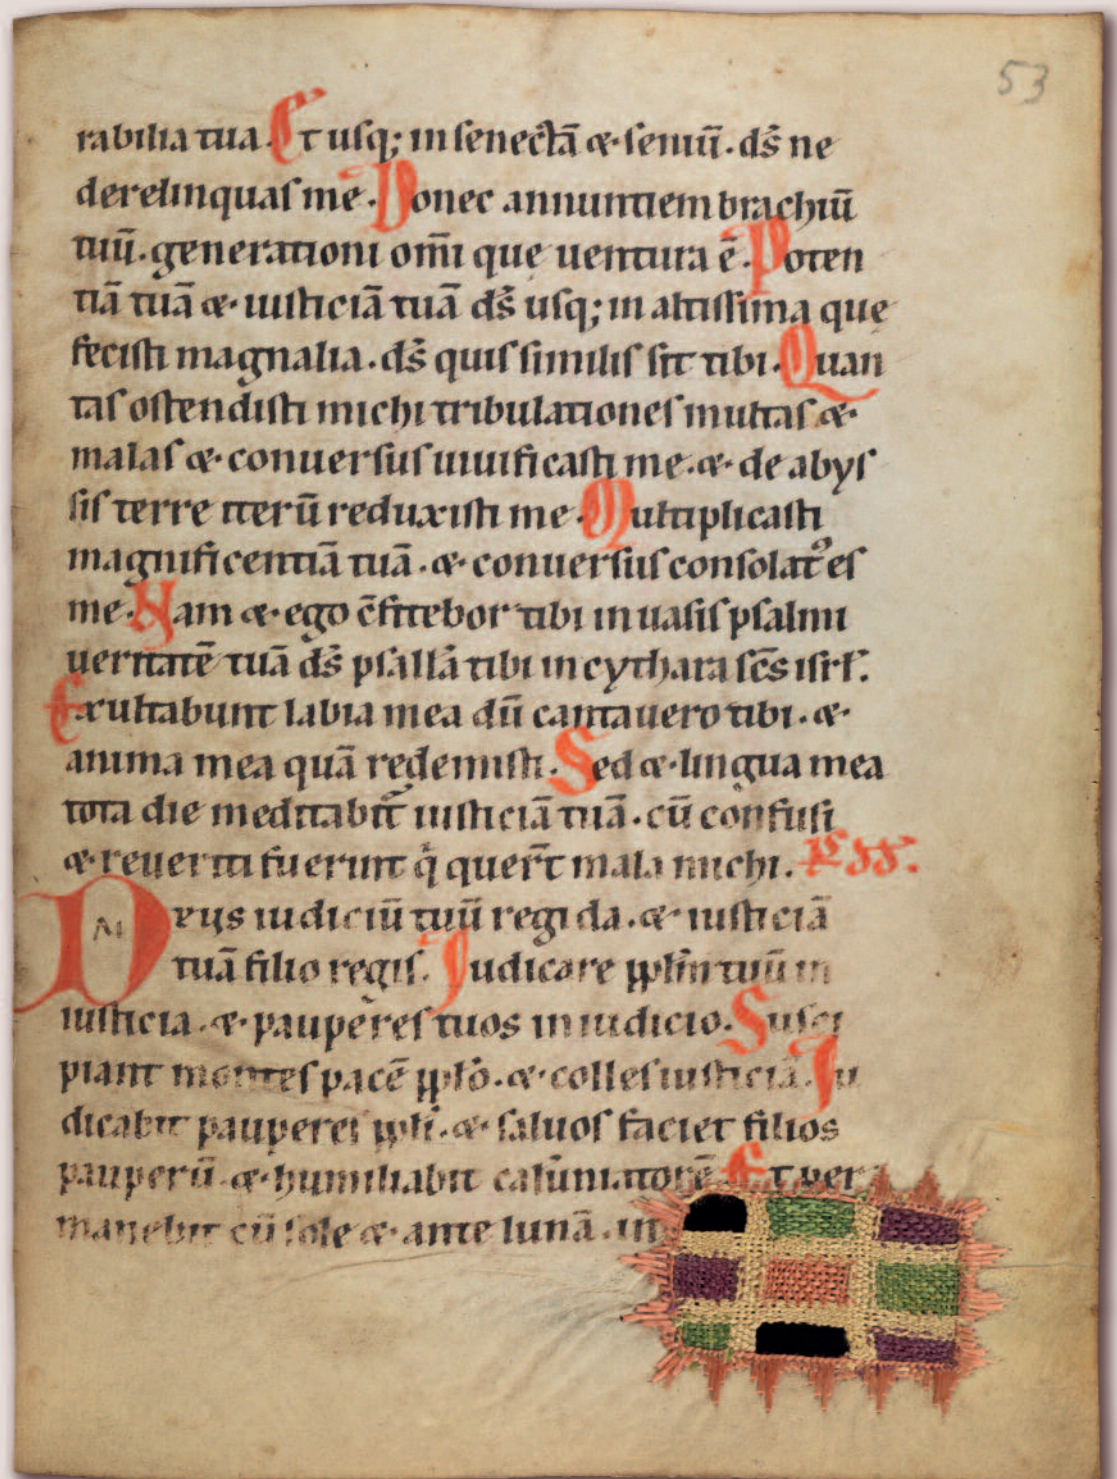 53
rabilia tua. Et usq; in senectā & seniū. ds̄ ne
derelinquas me. Donec annuntiem brachiū
tuū. generationi om̄i que uentura ē. Poten
tiā tuā & iusticiā tuā ds̄ usq; in altissima que
fecisti magnalia. ds̄ quis similis sit tibi. Quan
tas ostendisti michi tribulationes multas &
malas & conuersus uiuificasti me. & de abys
sis terre iterū reduxisti me. Multiplicasti
magnificentiā tuā. & conuersus consolat᷒ es
me. Nam & ego c̄fitebor tibi in uasis psalmi
ueritatē tuā ds̄ psallā tibi in cythara sc̄s isrł.
Exultabunt labia mea dū cantauero tibi. &
anima mea quā redemisti. Sed & lingua mea
tota die meditabit᷑ iusticiā tuā. cū confusi
& reuerti fuerint q̇ quer̄t mala michi. PSS.
Deus iudiciū tuū regi da. & iusticiā
tuā filio regis. Iudicare ꝓplm̄ tuū in
iusticia. & pauperes tuos in iudicio. Susci
piant montes pacē ꝓplō. & colles iusticiā. Iu
dicabit pauperes ꝓpłi. & saluos faciet filios
pauperū. & humiliabit calūniatorē Et per
manebit cū sole & ante lunā. in